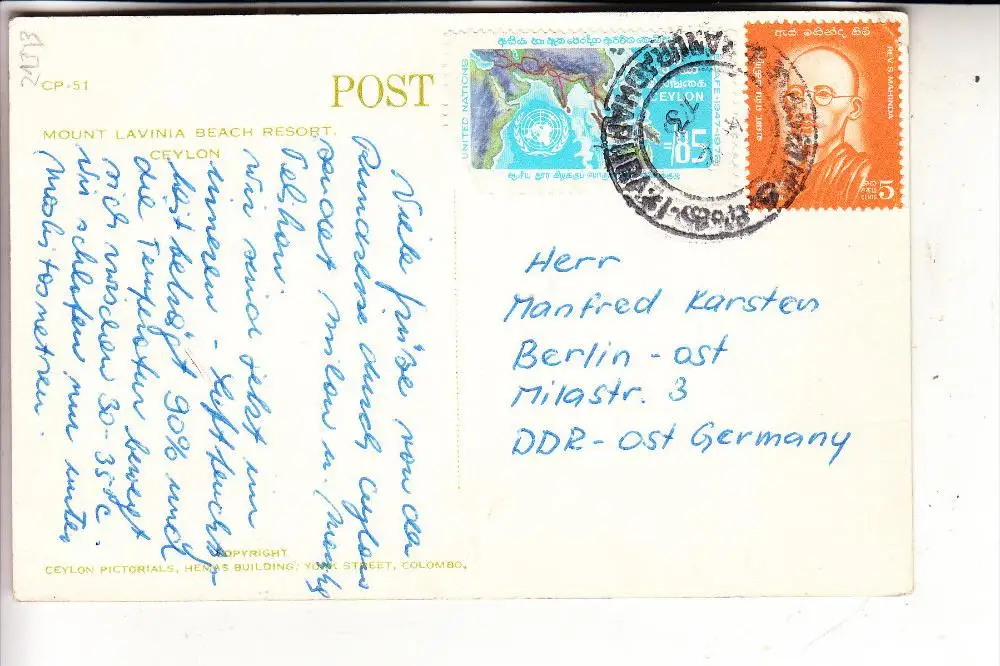 CP-51
POST
MOUNT LAVINIA BEACH RESORT.
CEYLON
UNITED NATIONS
CEYLON
85
ECAFE-1947-1973
REV. S. MAHINDA
5
Viele Grüße von der
Rundreise durch Ceylon
sendet
wir sind jetzt im
inneren - Luftfeucht
keit beträgt 90% und
die Temperatur bewegt
sich zwischen 30-35°C
wir schlafen nur unter
Moskitonetzen.
Herr
Manfred Karsten
Berlin - ost
Milastr. 3
DDR - ost Germany
COPYRIGHT
CEYLON PICTORIALS, HEMAS BUILDING, YORK STREET, COLOMBO,